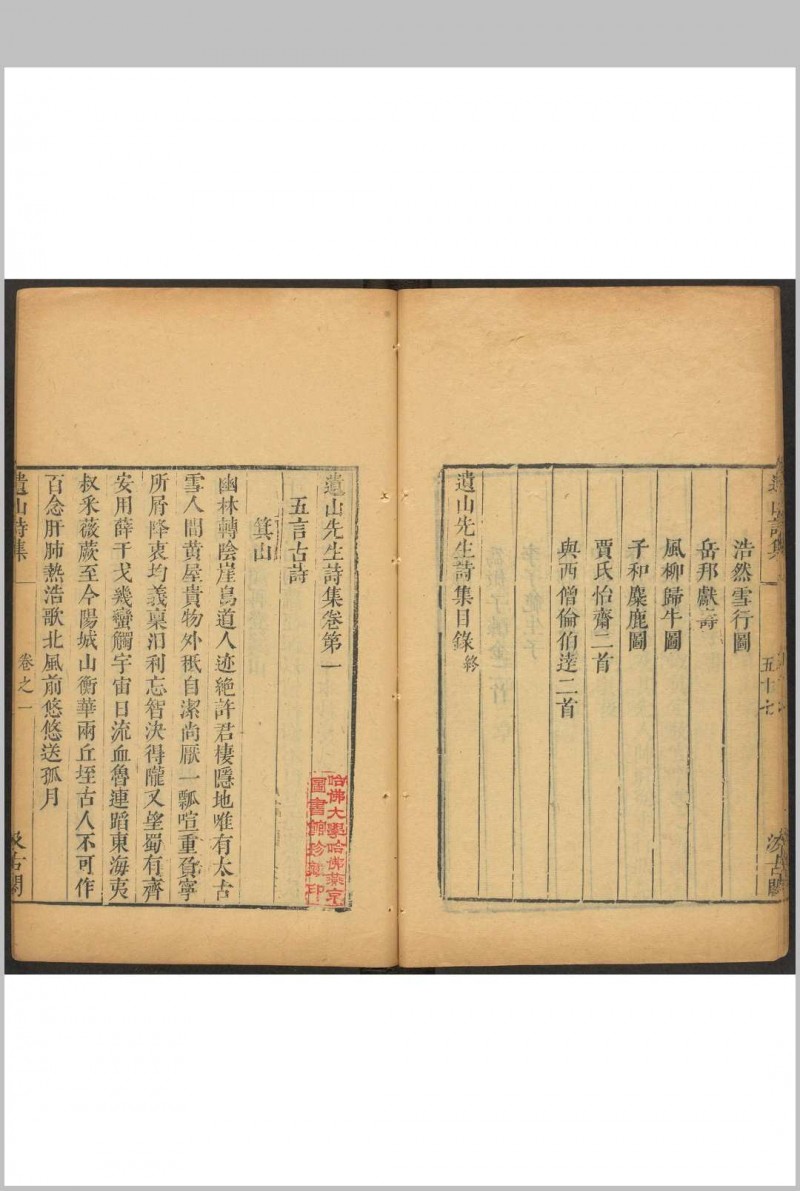 遺山詩集
五十七
汲古閣
浩然雪行圖
岳邦獻壽
風柳歸牛圖
子和麋鹿圖
賈氏怡齋二首
與西僧倫伯達二首
遺山先生詩集目錄終
遺山先生詩集卷第一
五言古詩
箕山
幽林轉陰崖鳥道人迹絶許君棲隱地唯有太古
雪人間黃屋貴物外秪自潔尚厭一瓢喧重負寧
所屑降衷均義稟汩利忘智決得隴又望蜀有齊
安用薛干戈幾蠻觸宇宙日流血魯連蹈東海夷
叔釆薇蕨至今陽城山衡華兩丘垤古人不可作
百念肝肺熱浩歌北風前悠悠送孤月
遺山詩集
卷之一
汲古閣
哈佛大學哈佛燕京
圖書館珍藏印